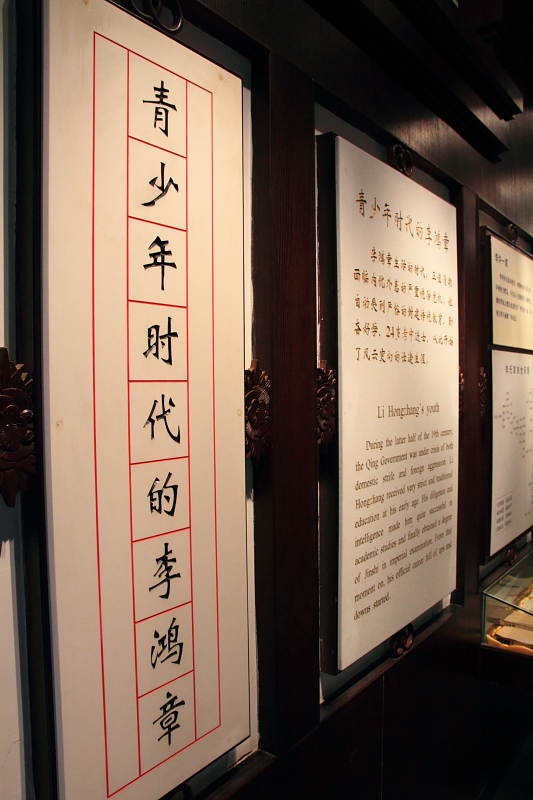 青少年时代的李鸿章
青少年时代的李鸿章
李鸿章生活的时代，正值清朝
面临内忧外患的严重统治危机。他
自幼受到严格的封建传统教育，勤
奋好学，24岁考中进士，从此开始
了风云变幻的仕途生涯。
Li Hongzhang's youth
During the latter half of the 19th century,
the Qing Government was under crisis of both
domestic strife and foreign aggression. Li
Hongzhang received very strict and traditional
education at his early age. His diligence and
intelligence made him quite successful in
academic studies and finally obtained a degree
of Jinshi in imperial examination. From that
moment on, his official career full of ups and
downs started.